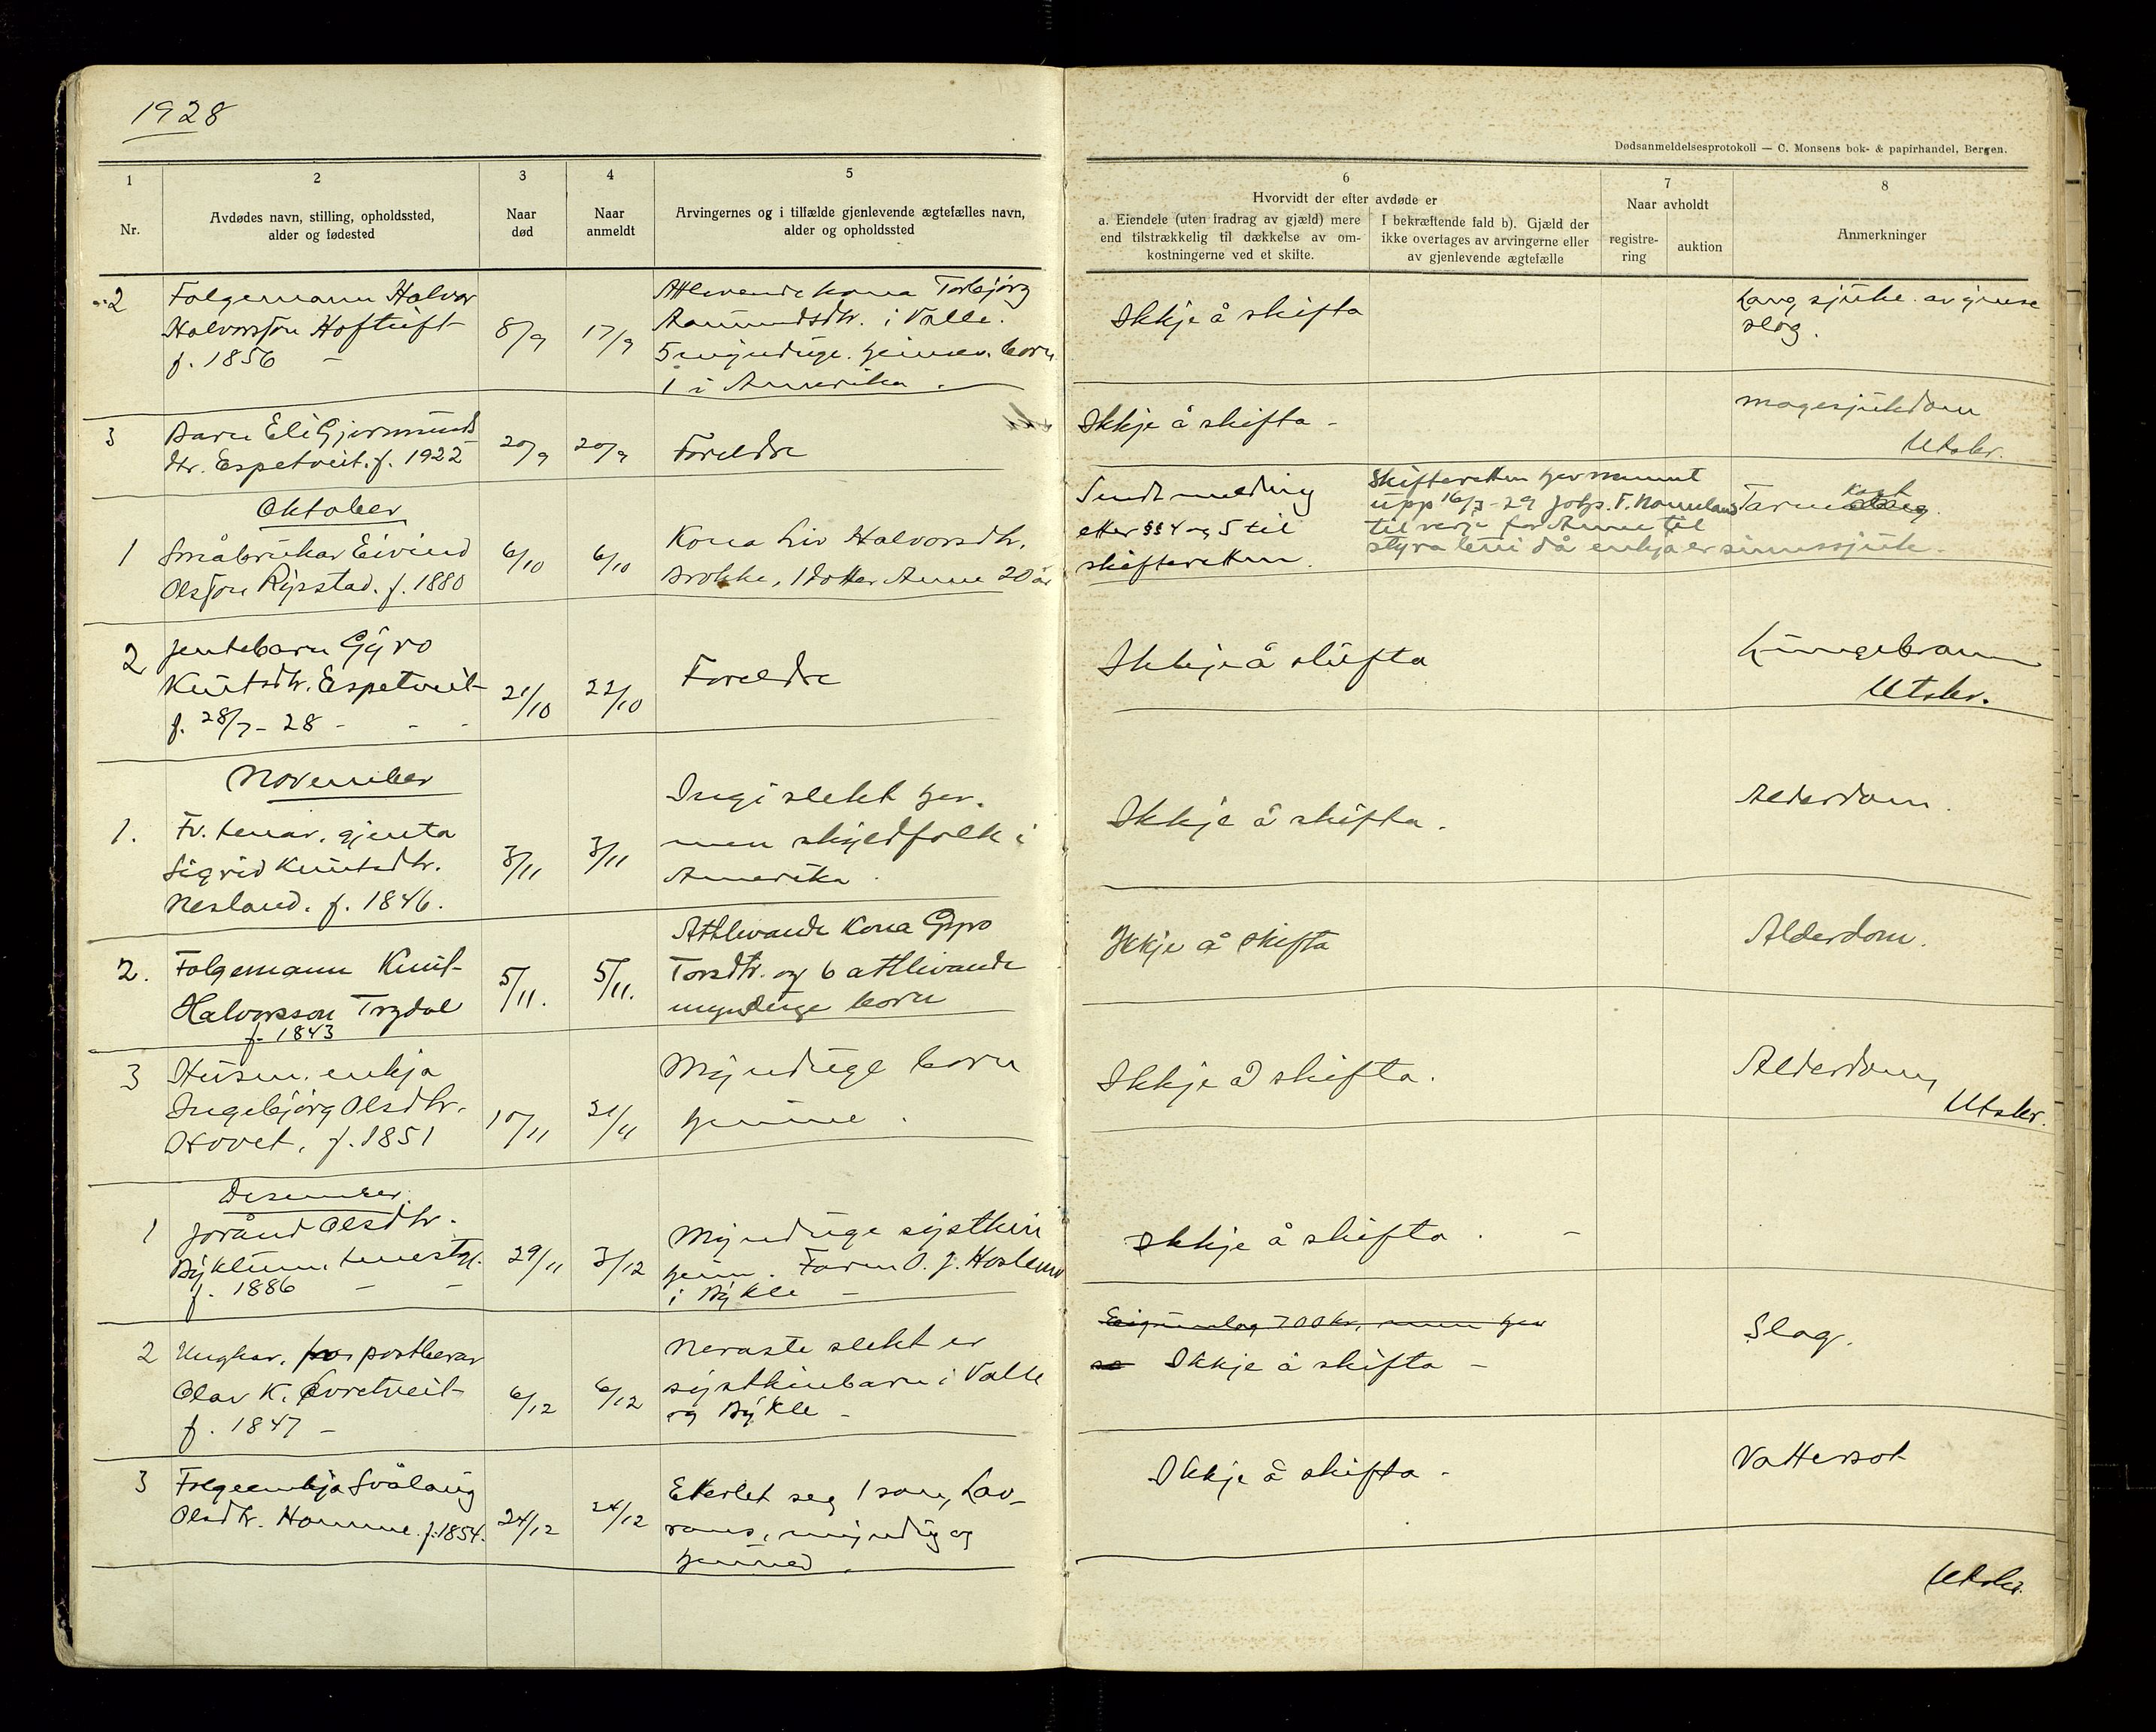 1928
Dødsanmeldelsesprotokoll — C. Monsens bok- & papirhandel, Bergen.
1
2
3
4
5
6
7
8
Nr.
Avdødes navn, stilling, opholdssted,
alder og fødested
Naar
død
Naar
anmeldt
Arvingernes og i tilfælde gjenlevende ægtefælles navn,
alder og opholdssted
Hvorvidt der efter avdøde er
a. Eiendele (uten fradrag av gjæld) mere
end tilstrækkelig til dækkelse av om-
kostningerne ved et skifte.
I bekræftende fald b). Gjæld der
ikke overtages av arvingerne eller
av gjenlevende ægtefælle
Naar avholdt
registre-
ring
auktion
Anmerkninger
2
Folgemann Halvor
Halvorsson Hoftuft
f. 1856 –
8/9
17/9
Attlevende kona Torbjørg
Aamundsdtr. i Valle.
5 myndige. heimev. born
1 i Amerika.
Ikkje å skifta
Lang sjuke av ymse
slag.
3
Barn Eli Gjermunds
dtr. Espetveit. f. 1922
20/9
20/9
Foreldre
Ikkje å skifta –
Magesjukdom
Utskr.
Oktober
1
Småbrukar Eivind
Olsson Rysstad. f. 1880
6/10
6/10
Kona Liv Halvorsdtr.
Brokke, 1 dotter Anne 20 år
Sendt melding
etter §§ 4 og 5 til
skifteretten.
Skifteretten hev nemnt
upp 16/3-29
til verje for Anne til
styra då enkja er sinnssjuk.
2
Jentebarn Gyro
Knutsdtr. Espetveit
f. 28/7 – 28 – – –
21/10
22/10
Foreldre
Ikkje å skifta
Lungebrann
Utskr.
November
1.
Fv. tenar, gjenta
Sigrid Knutsdtr.
Nesland. f. 1846.
3/11
3/11
Ingi slekt her.
men skyldfolk i
Amerika.
Ikkje å skifta.
Alderdom.
2.
Folgemann Knut
Halvorsson Trydal
f. 1843
5/11.
5/11.
Attlevande kona Gyro
Torsdtr. og 6 attlivande
myndige born
Ikkje å skifta
Alderdom.
3
Husm. enkja
Ingebjørg Olsdtr.
Hovet, f. 1851
10/11
21/11
Myndige born
heime.
Ikkje å skifta.
Alderdom,
Utskr.
Desember.
1
Jorånd Olsdtr.
Byklum, tenestgj.
f. 1886 – –
29/11
3/12
Myndige systkin
heim. Faren O. J. Hoslemo
i Bykle –
Ikkje å skifta. –
2
Ungkar, postberar
Olav K. Dvretveit
f. 1847 –
6/12
6/12
Neraste slekt er
systkinbarn i Valle
og Bykle –
Eigumlag 700 kr, men hev
so Ikkje å skifta –
Slag.
3
Folgeenkja Svålaug
Olsdtr. Homme. f. 1854.
24/12
24/12
Etterlet seg 1 son, Lav-
rans, myndig og
heimed.
Ikkje å skifta –
Vattersot
Utskr.